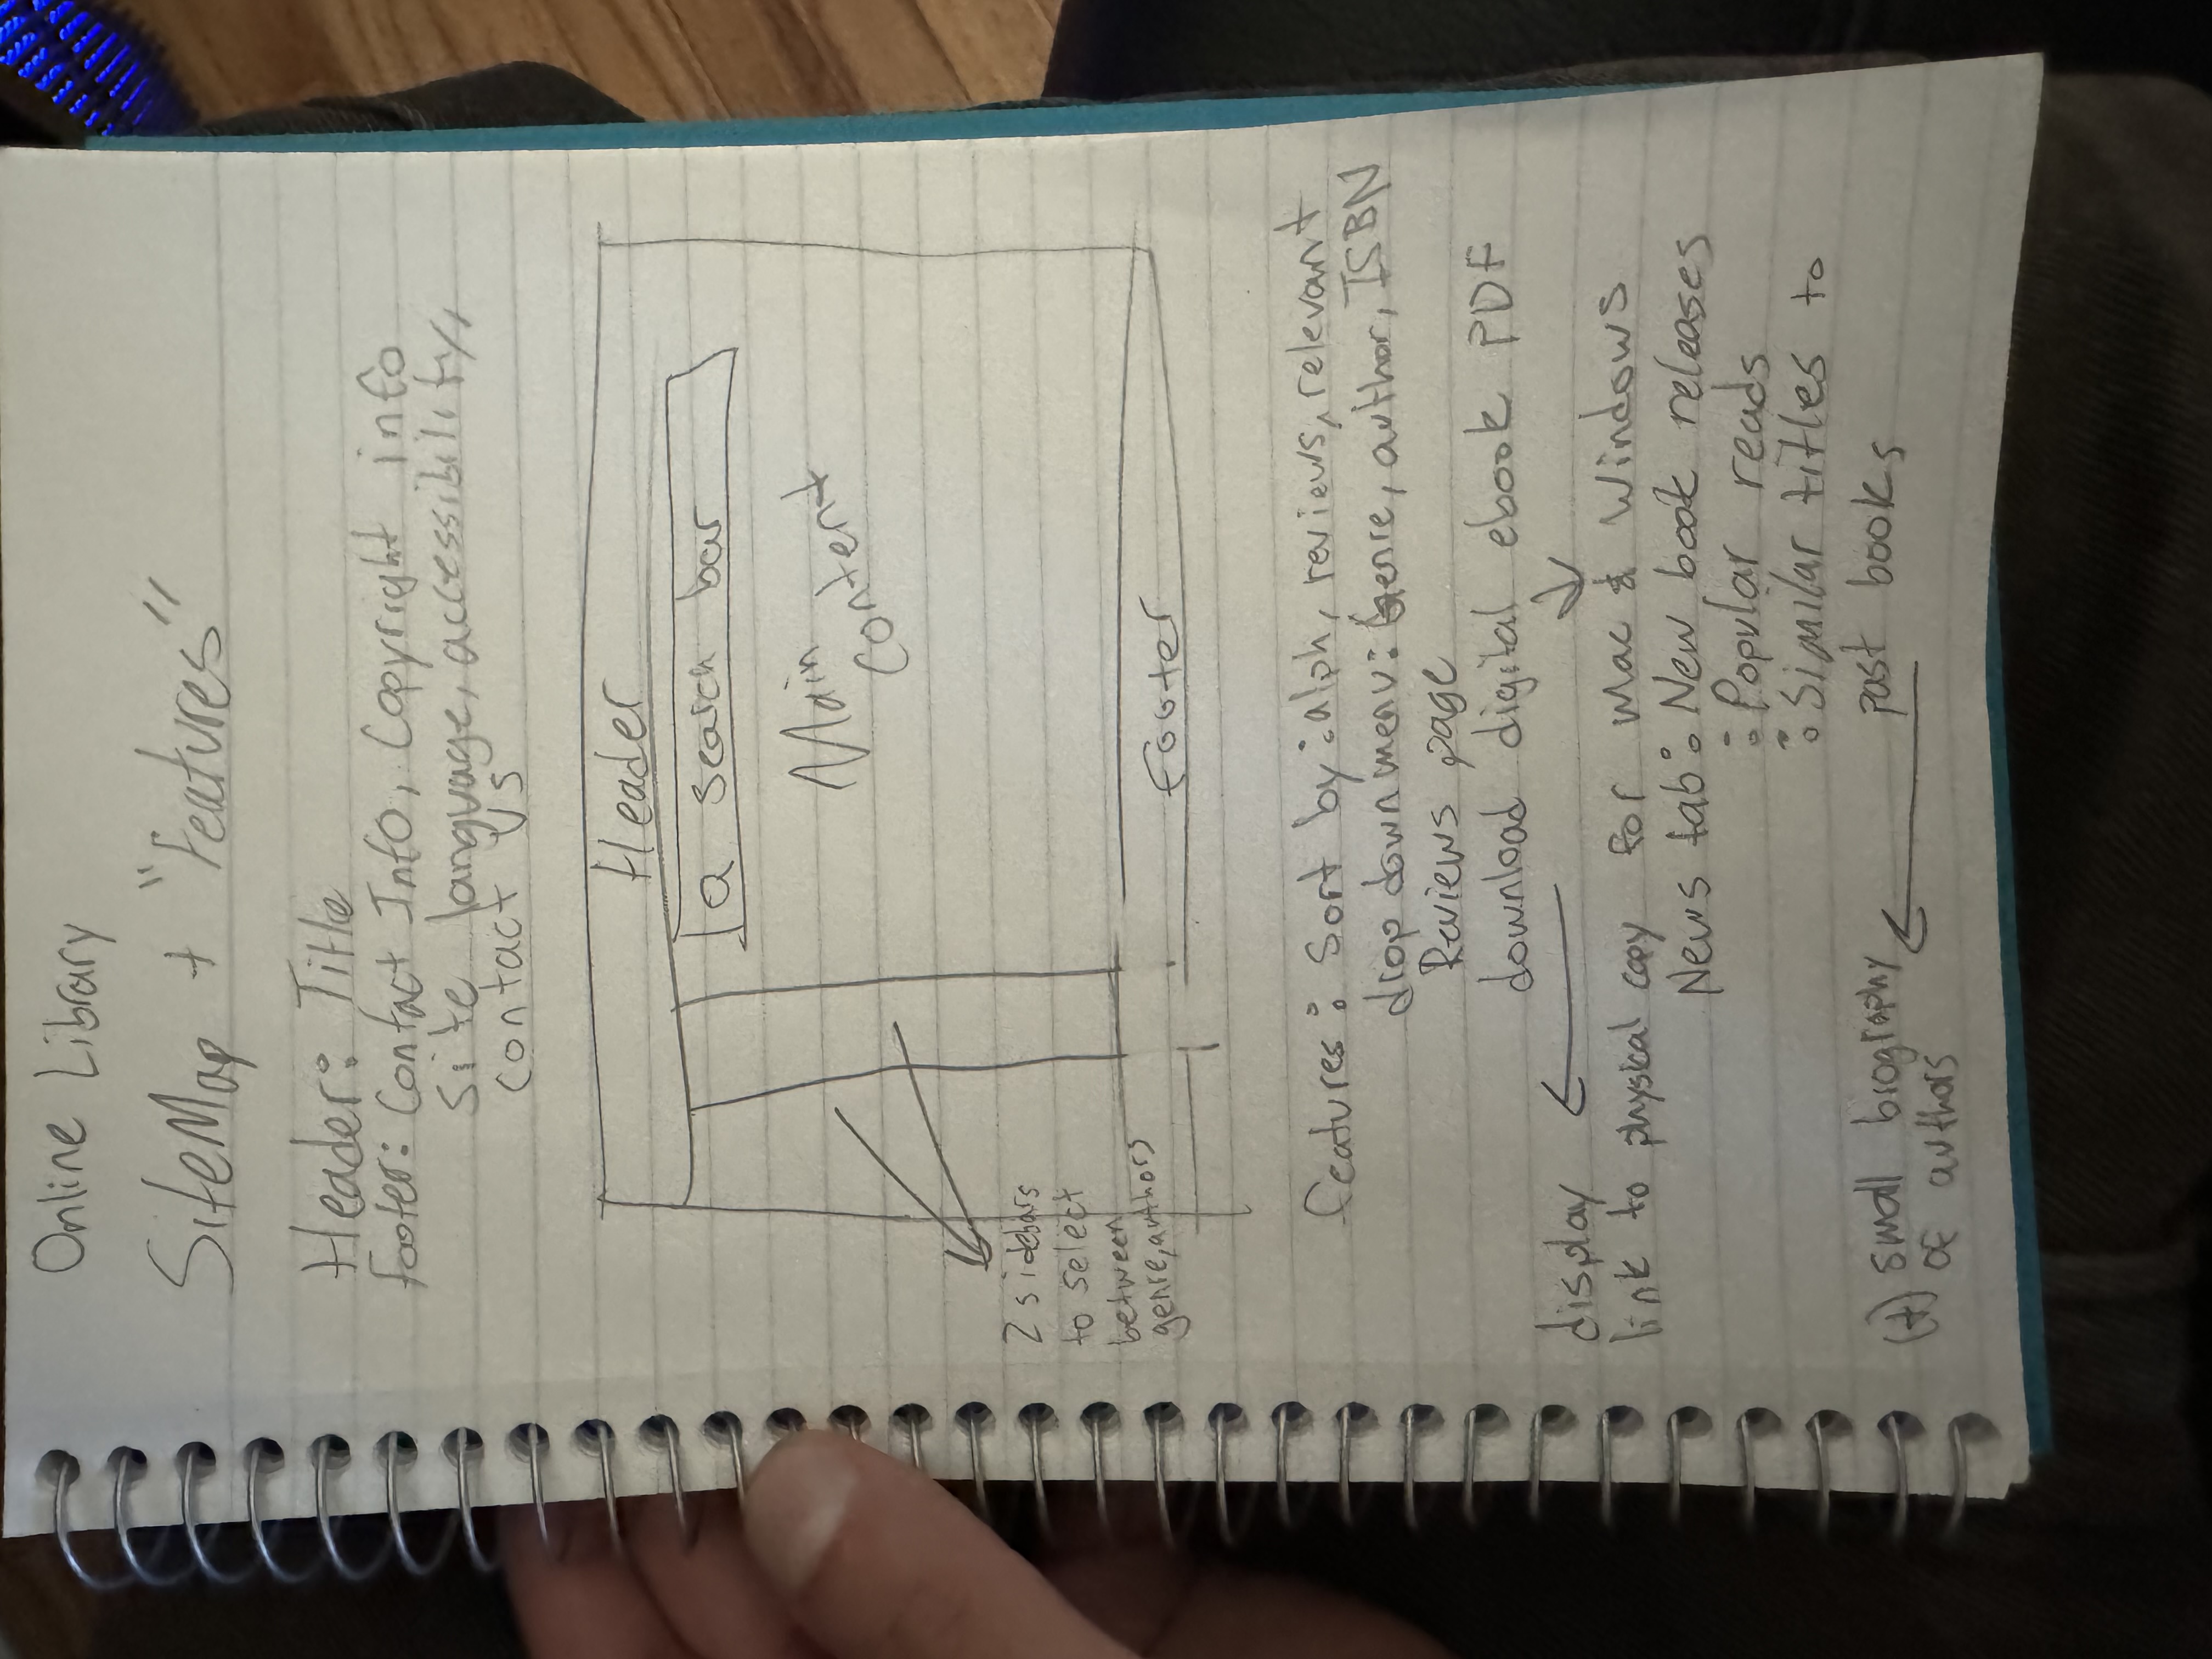 Online Library
SiteMap + "Features"
Header: Title
footer: Contact Info, Copyright info
site language, accessibility,
contact us
Header
a search bar
Main
content
2 sidebars
to select
between
genre, authors
footer
features: Sort by: alph, reviews, relevant
drop down menu: Genre, author, ISBN
Reviews page
download digital ebook PDF
display
link to physical copy for mac & Windows
News tab: New book releases
: Popular reads
: Similar titles to
past books
(+) small biography
of authors